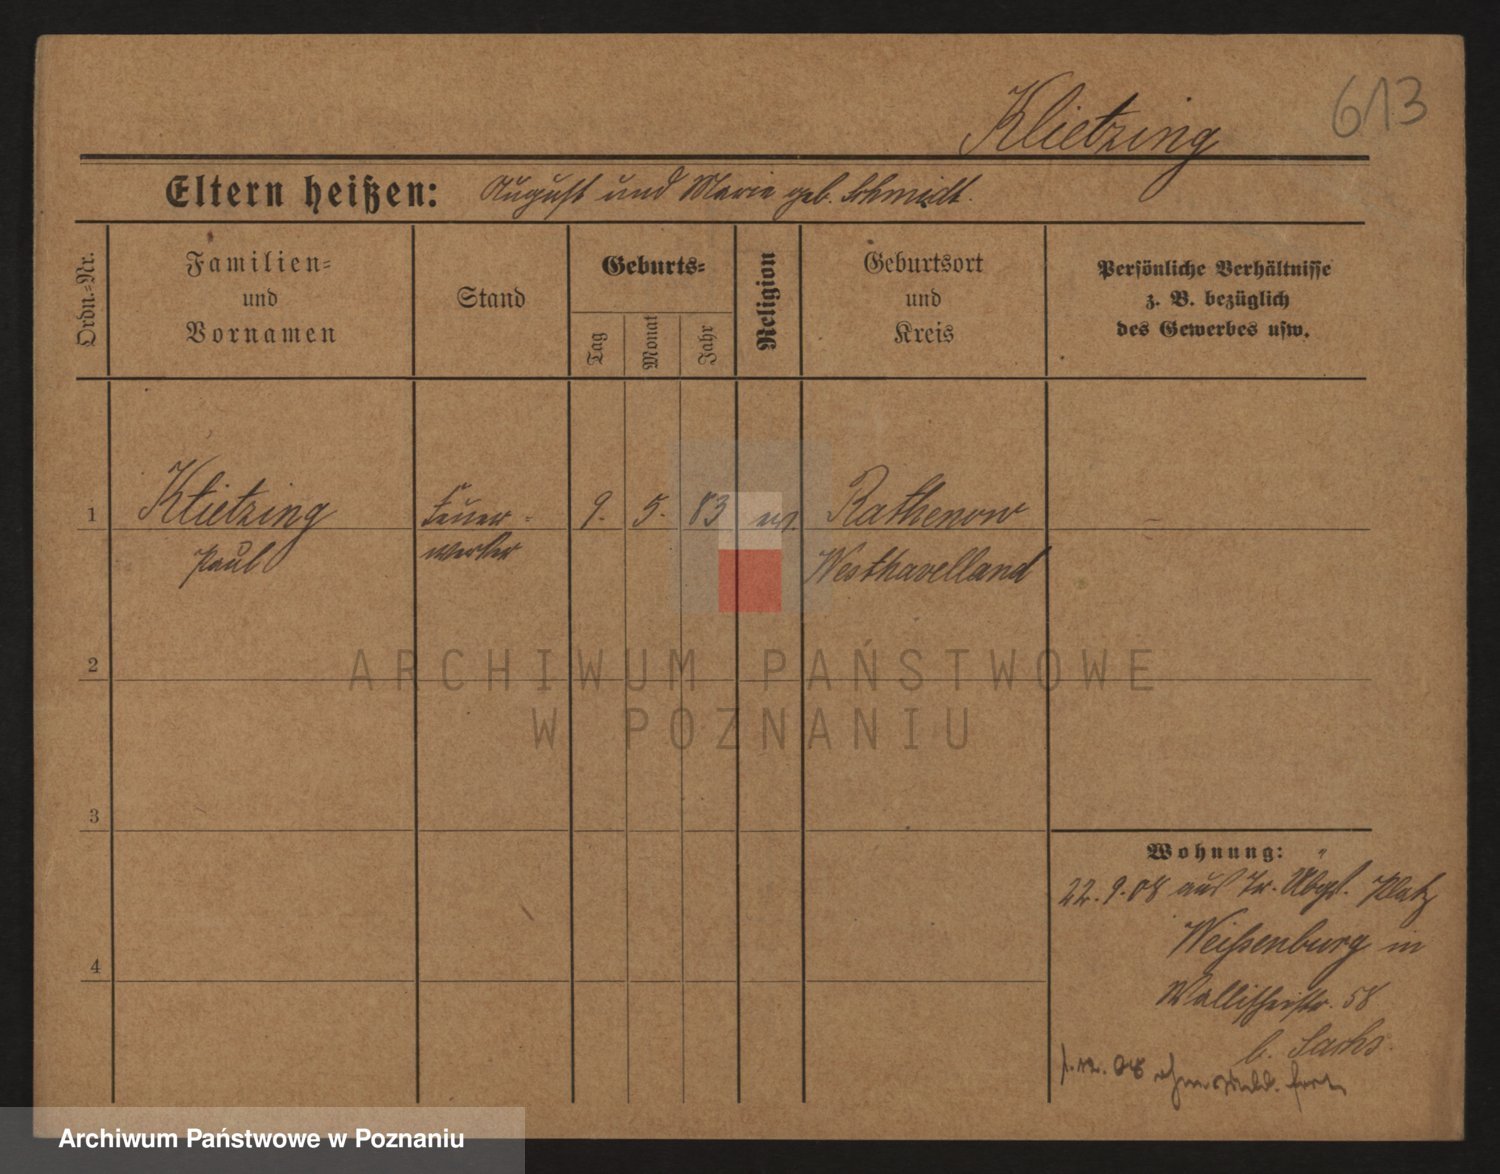 613
Klietzing
Eltern heißen: August und Marie geb. Schmidt.
Ordn.-Nr.
Familien-
und
Vornamen
Stand
Geburts-
Tag
Monat
Jahr
Religion
Geburtsort
und
Kreis
Persönliche Verhältnisse
z. B. bezüglich
des Gewerbes usw.
1 Klietzing Feuer- 9. 5. 83 ev. Rathenow –
Paul werker Westhavelland
2
3
4
Wohnung:
22.9.08 aus Tr. Übgs. Platz
Weißenburg in
Wallischeistr. 58
b. Sachs.
1.12.08
ARCHIWUM PAŃSTWOWE
W POZNANIU
Archiwum Państwowe w Poznaniu